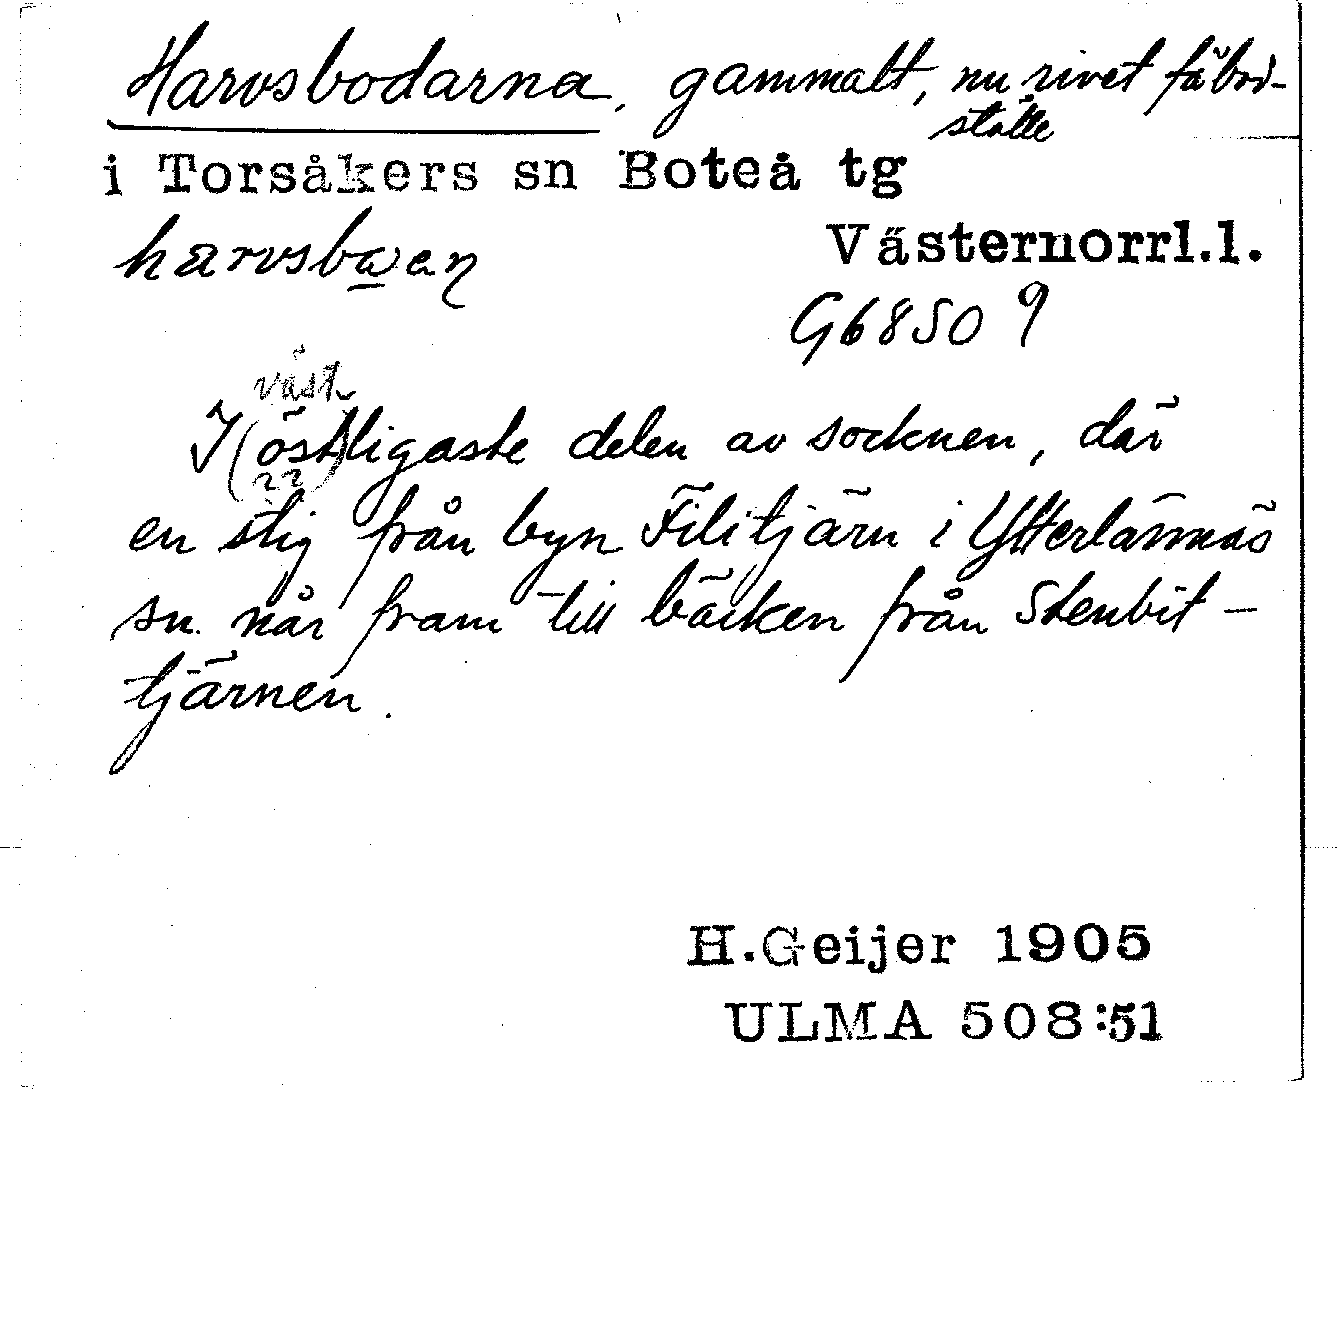 Harvsbodarna, gammalt, nu rivet fäbod-
ställe
i Torsåkers sn Boteå tg
Västernorrl.l.
G6850 9
väst
I (öst)ligaste delen av socknen, där
??
en stig från byn Filitjärn i Ytterlännäs
sn. når fram till bäcken från Stenbit-
tjärnen.
H.Geijer 1905
ULMA 508:51